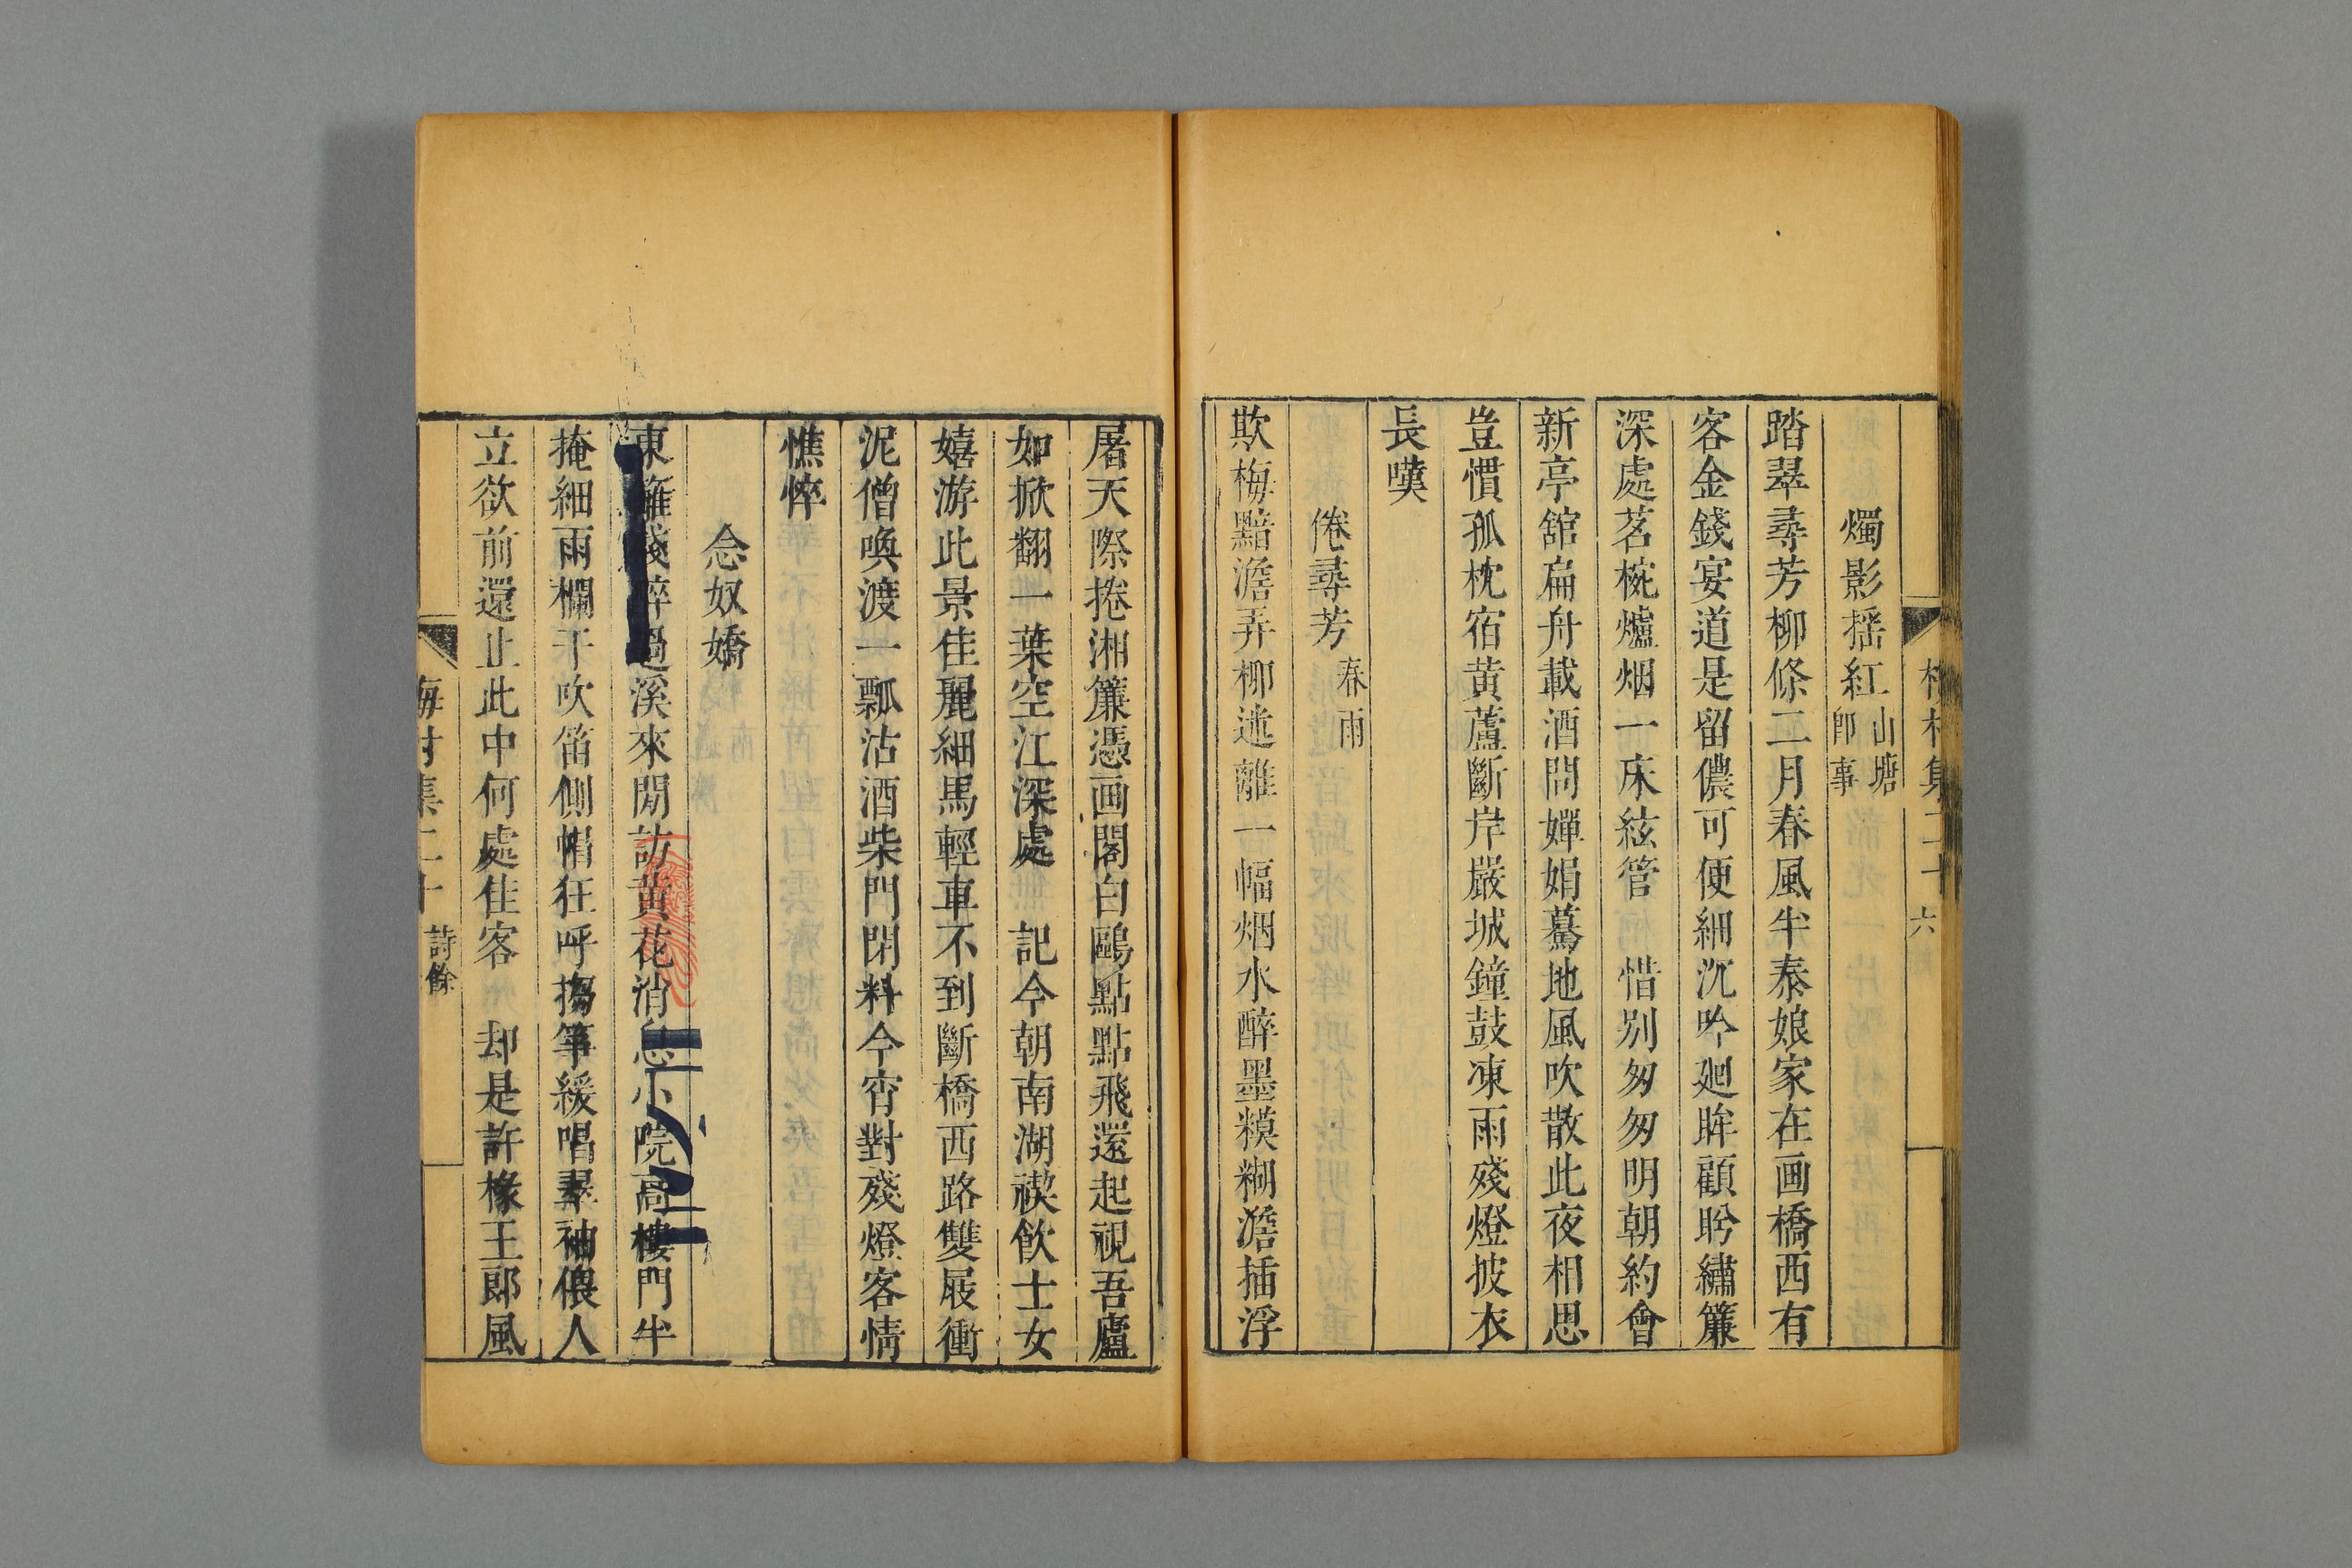 梅村集二十 六
燭影搖紅 山塘即事
踏翠尋芳柳條二月春風半泰娘家在画橋西有
客金錢宴道是留儂可便細沉吟廻眸顧盼繡簾
深處茗椀爐烟一床絃管 惜別匆匆明朝約會
新亭舘扁舟載酒問嬋娟驀地風吹散此夜相思
豈慣孤枕宿黄蘆斷岸嚴城鐘鼓凍雨殘燈披衣
長嘆
倦尋芳 春雨
欺梅黯澹弄柳迷離一幅烟水醉墨糢糊澹插浮
屠天際捲湘簾憑画閣白鷗點點飛還起視吾廬
如掀翻一葉空江深處 記今朝南湖禊飲士女
嬉游此景佳麗細馬輕車不到斷橋西路雙屐衝
泥僧喚渡一瓢沽酒柴門閉料今宵對殘燈客情
憔悴
念奴嬌
東籬殘醉過溪來閒訪黄花消息小院高樓門半
掩細雨欄干吹笛側帽狂呼搊箏緩唱翠袖偎人
立欲前還止此中何處佳客 却是許椽王郎風
梅村集二十 詩餘